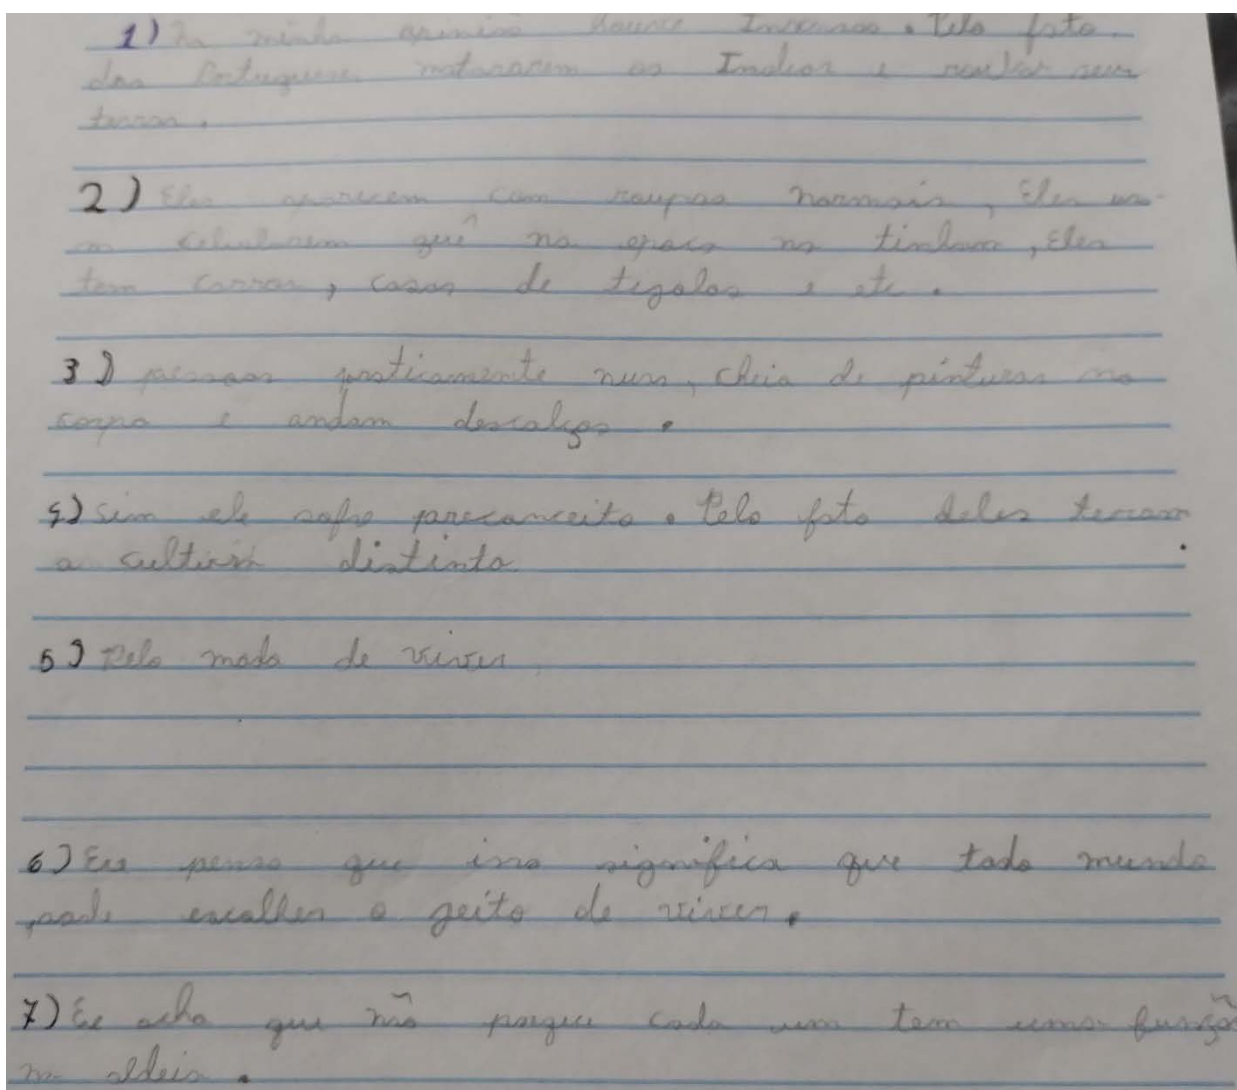 1) Na minha opinião houve Invasão. Pelo fato
dos Portugueses matararem os Indios e roubar seus
terras.
2) Eles aparecem com roupas normais, Eles usa-
m celular sem quê na epoca no tinham, Eles
tem carros, casas de tigolos e etc.
3) pessoas praticamente nuas, cheia de pinturas no
corpo e andam descalços.
4) Sim ele sofre preconceito. Pelo fato deles terem
a cultura distinta.
5) Pelo modo de viver
6) Eu penso que isso significa que todo mundo
pode escolher o geito de viver.
7) Eu acho que não porque cada um tem uma função
na aldeia.